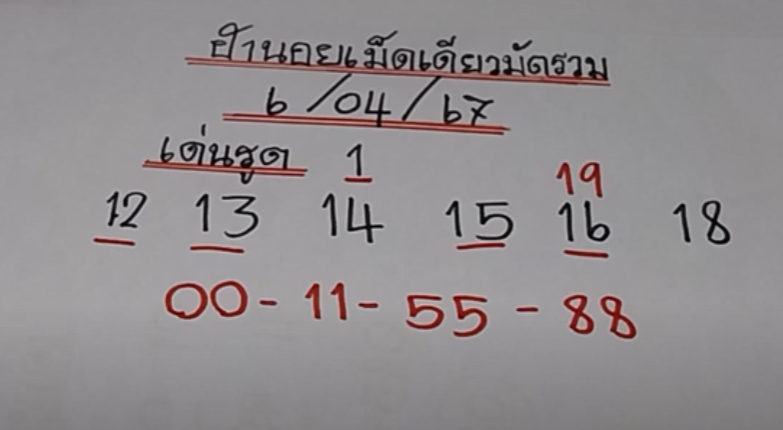 ฮานอยเม็ดเดียวมัดรวม
6/04/67
เด่นรูด 1
19
12 13 14 15 16 18
00-11-55-88